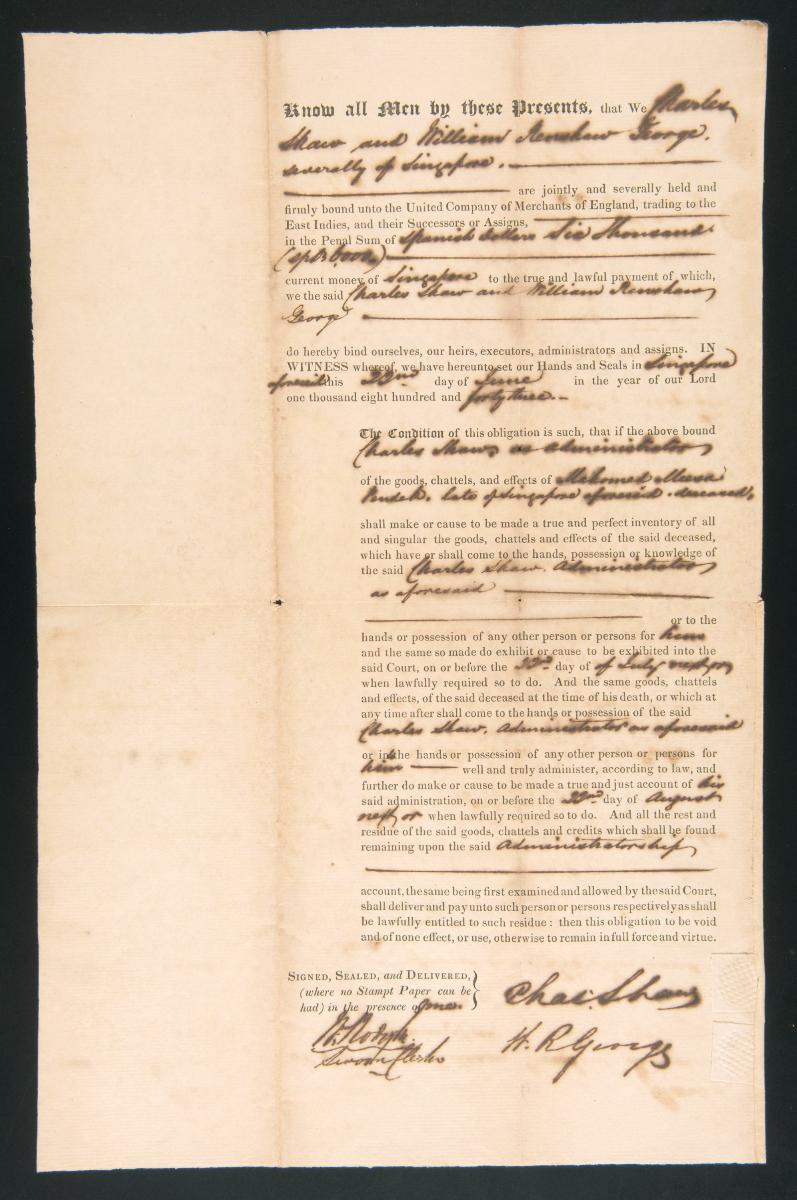 Know all Men by these Presents, that We Charles
Shaw and William Renshaw George.
severally of Singapore.
are jointly and severally held and
firmly bound unto the United Company of Merchants of England, trading to the
East Indies, and their Successors or Assigns,
in the Penal Sum of Spanish dollars Six Thousand
(Sp.Ds 6000)
current money of Singapore to the true and lawful payment of which,
we the said Charles Shaw and William Renshaw
George
do hereby bind ourselves, our heirs, executors, administrators and assigns. IN
WITNESS whereof, we have hereunto set our Hands and Seals in Singapore
aforesaid this 22nd day of June in the year of our Lord
one thousand eight hundred and forty three.
The Condition of this obligation is such, that if the above bound
Charles Shaw, as Administrator
of the goods, chattels, and effects of Mahomed
late of Singapore aforesaid. deceased,
shall make or cause to be made a true and perfect inventory of all
and singular the goods, chattels and effects of the said deceased,
which have or shall come to the hands, possession or knowledge of
the said Charles Shaw. Administrator
as aforesaid
or to the
hands or possession of any other person or persons for him
and the same so made do exhibit or cause to be exhibited into the
said Court, on or before the 22nd day of of July next or
when lawfully required so to do. And the same goods, chattels
and effects, of the said deceased at the time of his death, or which at
any time after shall come to the hands or possession of the said
Charles Shaw. Administrator as aforesaid
or into the hands or possession of any other person or persons for
him well and truly administer, according to law, and
further do make or cause to be made a true and just account of his
said administration, on or before the 22nd day of August
next or when lawfully required so to do. And all the rest and
residue of the said goods, chattels and credits which shall be found
remaining upon the said Administratorship
account, the same being first examined and allowed by the said Court,
shall deliver and pay unto such person or persons respectively as shall
be lawfully entitled to such residue: then this obligation to be void
and of none effect, or use, otherwise to remain in full force and virtue.
SIGNED, SEALED, and DELIVERED,
(where no Stampt Paper can be
had) in the presence of me.
Chas. Shaw
Sworn Clerk
W. R George